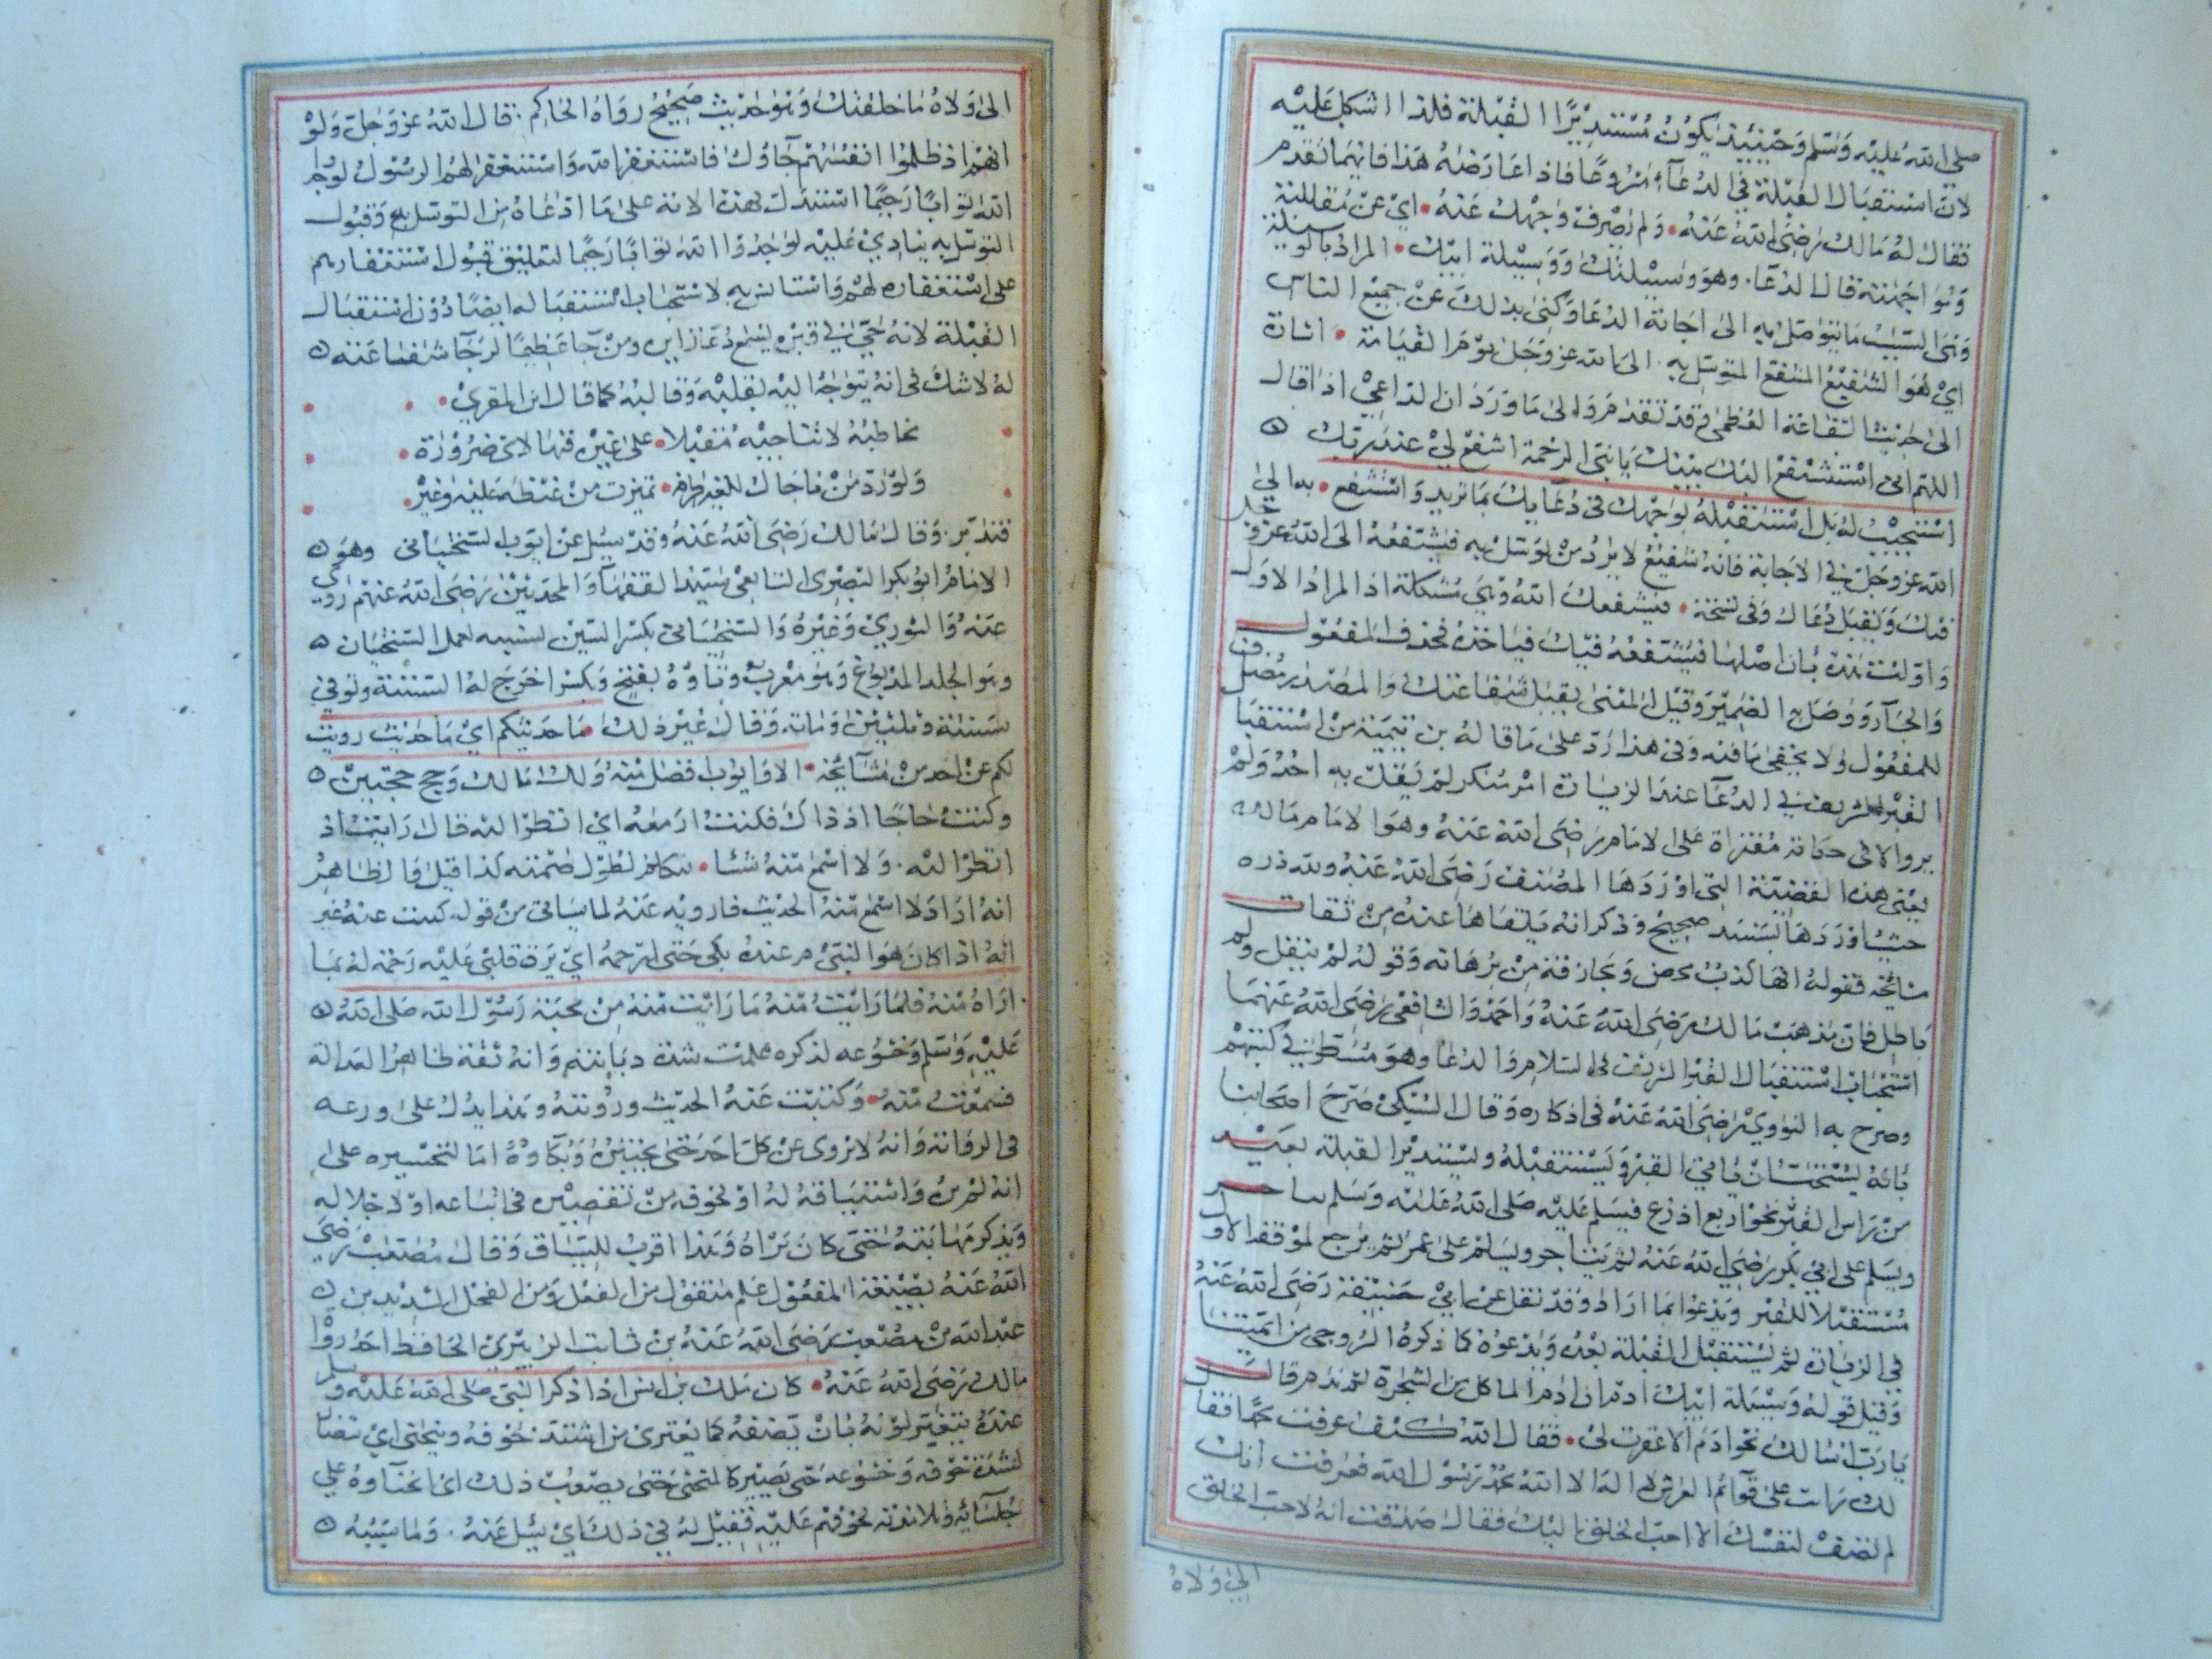 صلى الله عليه وسلم وحينئيذ يكون مستديرًا القبلة فلذا اشكل عليه
لان استقبال القبلة في الدعآء مشروعًا فاذا عارضه هذا فايهما تقدم
فقال له مالك رضى الله عنه ولم تصرف وجهك عنه اي عن مقابلته
ومواجهته قال الدعا وهو وسيلتك ووسيلة ابيك المراد بالوسيلة
وهى السبب ما يتواصل به الى اجابة الدعا وكنى بذلك عن جميع الناس
اي هو الشفيع المشفع المتوسل به الى الله عز وجل يوم القيامة اشارة
الى حديث الشفاعة العظمى وقد تقدم والى ما ورد ان الداعي اذا قال
اللهم انى استشفع اليك بنبيك يا نبى الرحمة اشفع لي عند ربك
استجيب له بل استقبله بوجهك في دعايك بما تريد واستشفع به الى
الله عز وجل في الاجابة فانه شفيع لا يرد من توسل به فيشفعه الى الله عز وجل
فيك ويقبل دعاك وفي نسخة فيشفعك الله وهي مشكلة اذ المراد الاول
واولت هذه بان اصلها فيشفعه فيك فحذف المفعول
والجار ووصل الضمير وقيل المعنى يقبل شفاعتك والمصدر مضاف
للمفعول ولا يخفى ما فيه وفي هذا رد على ما قاله بن تيمية من استقبال
القبر الشريف في الدعآ عند الزيارة امر منكر لم يقل به احد ولم
يروا الا في حكاية مفتراة على الامام رضى الله عنه وهو الامام مالك
يعني هذه القصة التي اوردها المصنف رضى الله عنه ولله دره
حيث اوردها بسند صحيح وذكر انه تلقاها عنده من ثقات
مشايخه فقوله انها كذب محض ومجازفة من برهاته وقوله لم ينقل ولم
باطل فان مذهب مالك رضى الله عنه واحمد والشافعي رضى الله عنهما
استحباب استقبال القبر الشريف في السلام والدعا وهو مسطر في كتبهم
وصرح به النووي رضى الله عنه في اذكاره وقال السبكي صرح اصحابنا
بانه يستحب ان ياتي القبر ويستقبله ويستدير القبلة بعيد
من راس القبر نحو اربع اذرع فيسلم عليه صلى الله عليه وسلم
ويسلم على ابي بكر رضى الله عنه ثم يتاخر ويسلم على عمر ثم يرجع لموقفه الاول
مستقبلا للقبر ويدعوا بما اراد وقد نقل عن ابي حنيفة رضى الله عنه
في الزيارة ثم يستقبل القبلة بعده ويدعوه كما ذكره السروجي من ايمتنا
وقيل قوله وسيلة ابيك ادم ان ادم لما اكل من الشجرة ثم ندم قال
يا رب اسالك بحق ادم الا غفرت لي فقال الله كيف عرفت محمدًا فقال
لك رايت على قوآئم العرش لا اله الا الله محمد رسول الله فعرفت انك
لم تضف لنفسك الا احب الخلق اليك فقال صدقت انه لاحب الخلق
الى ولاه
الى ولاه ما خلقتك وهو حديث صحيح رواه الحاكم قال الله عز وجل ولو
انهم اذ ظلموا انفسهم جآوك فاستغفروا الله واستغفر لهم الرسول لوجدوا
الله توابًا رحيمًا استدل بهذه الاية على ما ادعاه من التوسل به وقبول
التوسل به ينادي عليه لوجدوا الله توابًا رحيمًا لتعليق قبول استغفارهم
على استغفاره لهم واستانس به لاستحباب استقباله ايضًا دون استقبال
القبلة لانه حي في قبره يسمع دعا زايره ومن جا عظيمًا لرجا شفاعته
له لا شك في انه يتواجه اليه بقلبه وقالبه كما قال ابن المقري
تخاطبه لا تناجيه مقبلا على غيره فيها لاى ضرورة
ولو رد من ناجاك للغير طرفه تميزت من غيظ عليه وغير
فتدبر وقال مالك رضى الله عنه وقد سئل عن ايوب السختيانى وهو
الامام ابو بكر البصرى التابعى سيد الفقهآ والمحدثين رضى الله عنهم روي
عنه والثوري وغيره والسختيانى بكسر السين لنسبه لعمل السختيان
وهو الجلد المدبوغ وهو معرب وتاوه بفتح وبكسر اخرج له الستة وتوفي
سنة وثلثين وماية وقال غير ذلك ما حدثتكم اي ما حديث رويت
لكم عن احد من مشآيخه الا وايوب افضل منه ولك مالك وحج حجتين
وكنت حاجا اذ ذاك فكنت ارمقه اى انظر اليه قال رايت اذ
انظر اليه ولا اسمع منه شيئا يتكلم لطول صمته كذا قيل والظاهر
انه اراد لا اسمع منه الحديث فارويه عنه لما سياتى من قوله كتبت عنه غير
انه اذا كان هوالنبى م عنده بكى حتى ارحمه اي يرق قلبي عليه رحمة له بما
اراه منه فلما رايت منه ما رايت منه من محبة رسول الله صلى الله
عليه وسلم وخشوعه لذكره علمت شدة ديانته وانه ثقة ظاهر العدالة
فسمعت منه وكتبت عنه الحديث ورويته وهذا يدل على ورعه
فى الرواية وانه لا يروى عن كل احد حتى يختبره وبكاوه اما لتحسره على
انه لم يره واشتياقه له او لخوفه من تقصير في اتباعه او لاجلاله
ويذكر مهابته حتى كان يراه وهذا اقرب للسياق وقال مصعب رضي
الله عنه بصيغة المفعول علم منقول من الفعل ومن الفحل الشديد بن
عبد الله بن مصعب رضى الله عنه بن ثابت الزبيري الحافظ احد رواة
مالك رضى الله عنه كان مالك بن انس اذا ذكر النبى صلى الله عليه وسلم
عنده يتغير لونه بان يصفه كما يعترى من اشتد خوفه وينحنى اي
لشدة خوفه وخشوعه حتى يصير كالمنحنى حتى يصعب ذلك اى انحنآوه على
جلسآيه وتلامذته لخوفهم عليه فقيل له في ذلك اي سئل عنه وما سببه